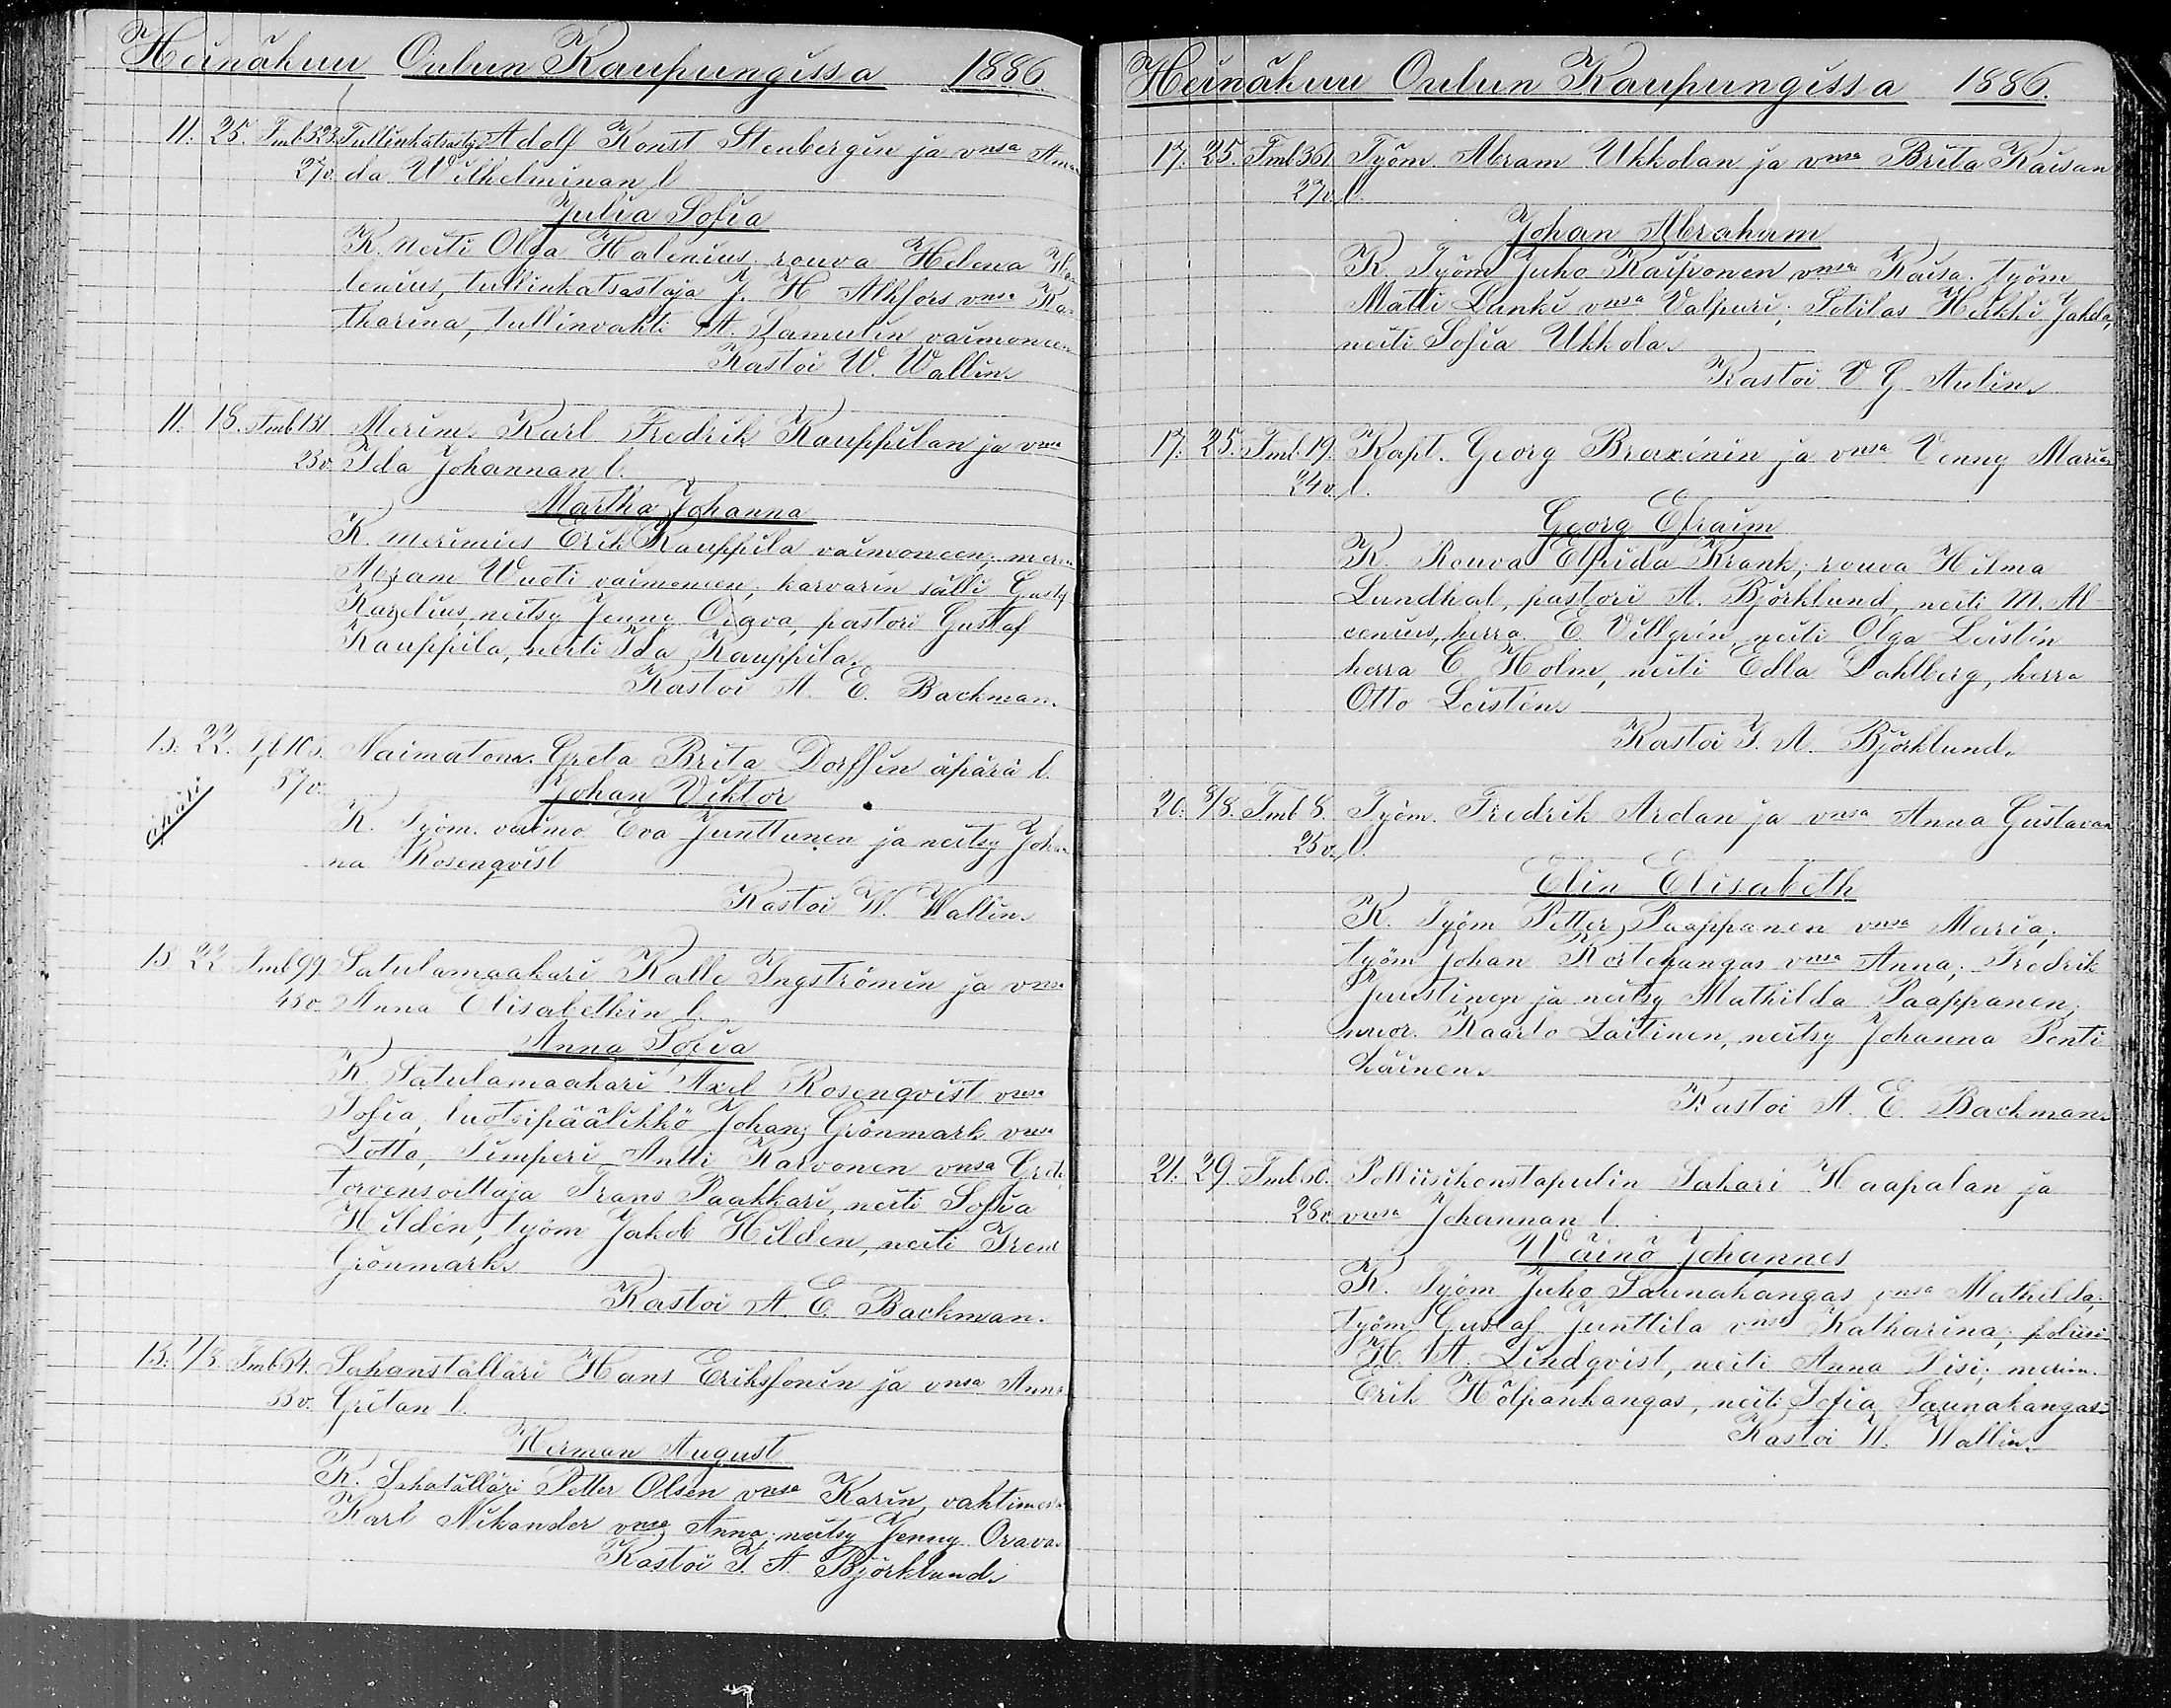 Heinäkuu Oulun Kaupungissa 1886.
11. 25. Tmb 323. Tullinkatsastj Adolf Konst Stenbergin ja vnsa Aman
27v. da Wilhelminan l.
Julia Sofia
K. neiti Olga Halenius, rouva Helena Ha
lenius, tullinkatsastaja J. H Alhfors vnsa Ka-
tharina, tullinvahti A. Samulin vaimoneen
Kastoi W. Wallin.
11. 18. Tmb 131. Merim. Karl Fredrik Kauppilan ja vnsa
23v. Ida Johannan l.
Martha Johanna
K. merimies Erik Kauppila vaimoneen; merim
Abram Wuoti vaimoneen; karvarin sälli Gust.
Karelius, neitsy Jenny Orava, pastori Gustaf
Kauppila, neiti Ida Kauppila.
Kastoi A. E. Backman.
13. 22. 106. Naimatoin. Greta Brita Dorffin äpärä l.
37v. Johan Viktor
äpärä
K. Työm. vaimo Eva Junttunen ja neitsy Johan
na Rosenqvist
Kastoi W. Wallin.
13. 22. Tmb 99. Satulamaakari Kalle Ingströmin ja vnsa
43v. Anna Elisabethin l.
Anna Sofia
K. Satulamaakari Axel Rosenqvist vnsa
Sofia, luotsipäälikkö Johan Grönmark vnsa
Lotta, Timperi Antti Karvonen vnsa Greta
torvensoittaja Frans Paakkari, neiti Sofia
Hildén, työm Jakob Hilden, neiti Irene
Grönmark.
Kastoi A. E. Backman.
13. 1/8. Tmb 64. Sahanställäri Hans Eriksonin ja vnsa Anna
33v. Gretan l.
Herman August
K. Sahatälläri Petter Olsen vnsa Karin, vahtimes.
Karl Nikander vnsa Anna; neitsy Jenny Orava.
Kastoi I. A. Björklund.
Heinäkuu Oulun Kaupungissa 1886.
17. 25. Tmb 361. Työm. Abram Ukkolan ja vnsa Brita Kaisan
27v. l.
Johan Abraham
K. Työm Juho Kauponen vnsa Kaisa. työm
Matti Lanki vnsa Valpuri; Sotilas Heikki Jakola,
neiti Sofia Ukkola.
Kastoi V G Aulin.
17. 25. Tmb. 19. Kapt. Georg Braxénin ja vnsa Venny Marian
24v. l.
Georg Efraim
K. Rouva Elfrida Krank; rouva Hilma
Lundhal, pastori A. Björklund, neiti M. Al-
cenius, herra E. Villgrén, neiti Olga Leistén
herra C Holm, neiti Edla Dahlberg, herra
Otto Leistén.
Kastoi I. A. Björklund.
20. 8/8. Tmb 8. Työm. Fredrik Ardan ja vnsa Anna Gustavan
25v. l.
Elin Elisabeth
K. Työm Petter Paappanen vnsa Maria;
työm Johan Kortekangas vnsa Anna; Fredrik
Juustinen ja neitsy Mathilda Paappanen;
nuor. Kaarlo Laitinen, neitsy Johanna Penti
käinen.
Kastoi A. E. Backman.
21. 29. Tmb 60. Polliisikonstapulin Sakari Haapalan ja
28v. vnsa Johannan l.
Wäinö Johannes
K. Työm Juho Saunakangas vnsa Mathilda;
työm Gustaf Junttila vnsa Katharina; poliisi
H. A. Lindqvist, neiti Anna Lisi; merim.
Erik Hölpänkangas, neiti Sofia Saunakangas
Kastoi W. Wallin.